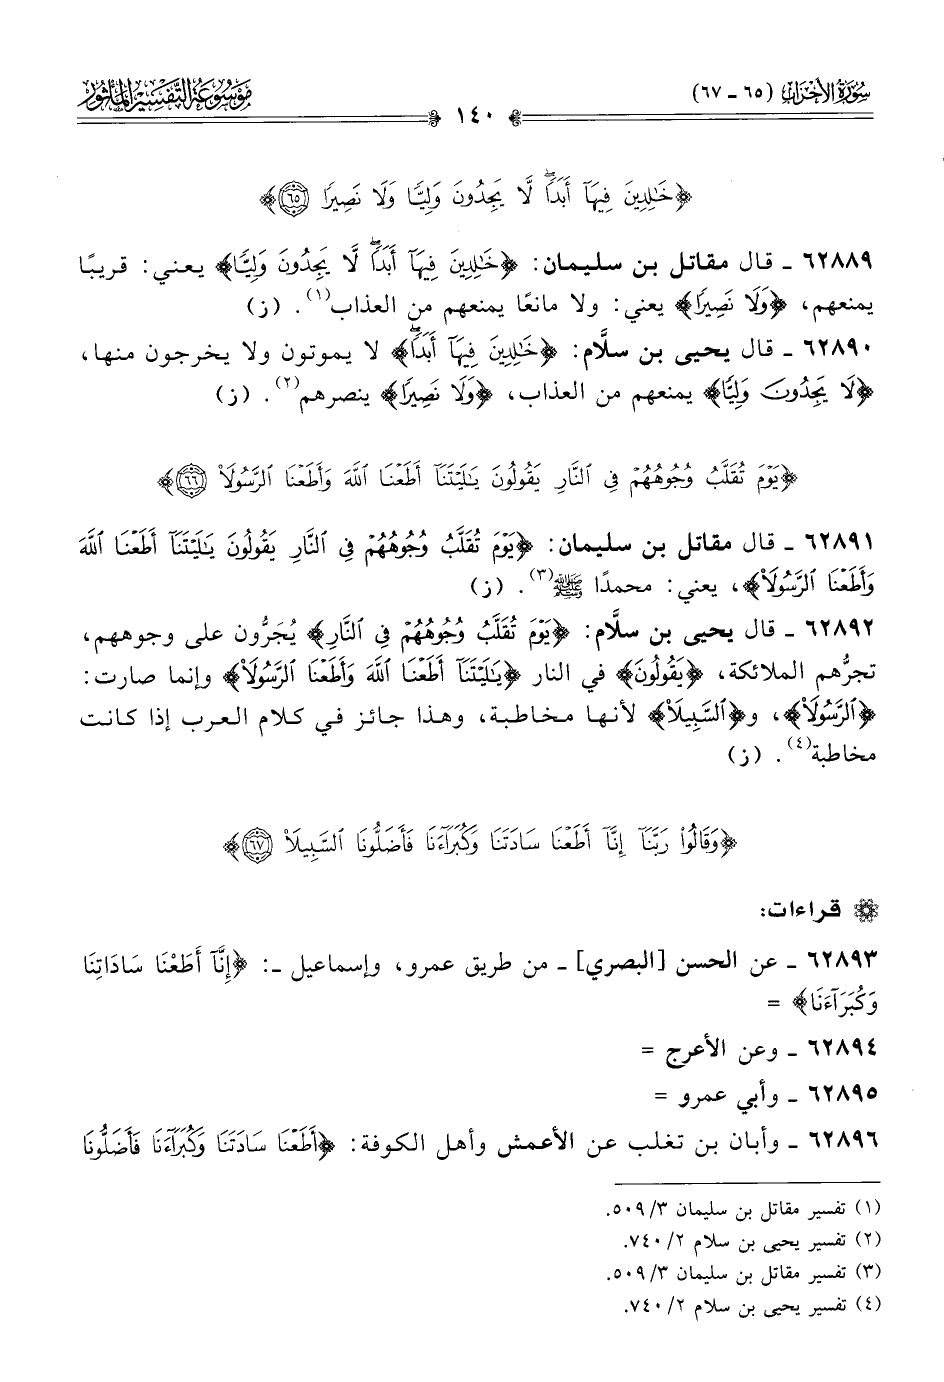 سُورَةُ الأَحْزَاب (٦٥ - ٦٧)
١٤٠
مَوْسُوعَةُ التَّفْسِيرِ المَأْثُور
﴿خَٰلِدِينَ فِيهَآ أَبَدًاۖ لَّا يَجِدُونَ وَلِيًّا وَلَا نَصِيرًا ٦٥﴾
٦٢٨٨٩ - قال مقاتل بن سليمان: ﴿خَٰلِدِينَ فِيهَآ أَبَدًاۖ لَّا يَجِدُونَ وَلِيًّا﴾ يعني: قريبًا
يمنعهم، ﴿وَلَا نَصِيرًا﴾ يعني: ولا مانعًا يمنعهم من العذاب(١). (ز)
٦٢٨٩٠ - قال يحيى بن سلَّام: ﴿خَٰلِدِينَ فِيهَآ أَبَدًاۖ﴾ لا يموتون ولا يخرجون منها،
﴿لَّا يَجِدُونَ وَلِيًّا﴾ يمنعهم من العذاب، ﴿وَلَا نَصِيرًا﴾ ينصرهم(٢). (ز)
﴿يَوْمَ تُقَلَّبُ وُجُوهُهُمْ فِي ٱلنَّارِ يَقُولُونَ يَٰلَيْتَنَآ أَطَعْنَا ٱللَّهَ وَأَطَعْنَا ٱلرَّسُولَا۠ ٦٦﴾
٦٢٨٩١ - قال مقاتل بن سليمان: ﴿يَوْمَ تُقَلَّبُ وُجُوهُهُمْ فِي ٱلنَّارِ يَقُولُونَ يَٰلَيْتَنَآ أَطَعْنَا ٱللَّهَ
وَأَطَعْنَا ٱلرَّسُولَا۠﴾، يعني: محمدًا ﷺ(٣). (ز)
٦٢٨٩٢ - قال يحيى بن سلَّام: ﴿يَوْمَ تُقَلَّبُ وُجُوهُهُمْ فِي ٱلنَّارِ﴾ يُجَرُّون على وجوههم،
تجرُّهم الملائكة، ﴿يَقُولُونَ﴾ في النار ﴿يَٰلَيْتَنَآ أَطَعْنَا ٱللَّهَ وَأَطَعْنَا ٱلرَّسُولَا۠﴾ وإنما صارت:
﴿ٱلرَّسُولَا۠﴾، و﴿ٱلسَّبِيلَا۠﴾ لأنها مخاطبة، وهذا جائز في كلام العرب إذا كانت
مخاطبة(٤). (ز)
﴿وَقَالُوا۟ رَبَّنَآ إِنَّآ أَطَعْنَا سَادَتَنَا وَكُبَرَآءَنَا فَأَضَلُّونَا ٱلسَّبِيلَا۠ ٦٧﴾
قراءات:
٦٢٨٩٣ - عن الحسن [البصري] - من طريق عمرو، وإسماعيل -: ﴿إِنَّآ أَطَعْنَا سَادَاتِنَا
وَكُبَرَآءَنَا﴾ =
٦٢٨٩٤ - وعن الأعرج =
٦٢٨٩٥ - وأبي عمرو =
٦٢٨٩٦ - وأبان بن تغلب عن الأعمش وأهل الكوفة: ﴿أَطَعْنَا سَادَتَنَا وَكُبَرَآءَنَا فَأَضَلُّونَا
(١) تفسير مقاتل بن سليمان ٣/ ٥٠٩.
(٢) تفسير يحيى بن سلام ٢/ ٧٤٠.
(٣) تفسير مقاتل بن سليمان ٣/ ٥٠٩.
(٤) تفسير يحيى بن سلام ٢/ ٧٤٠.